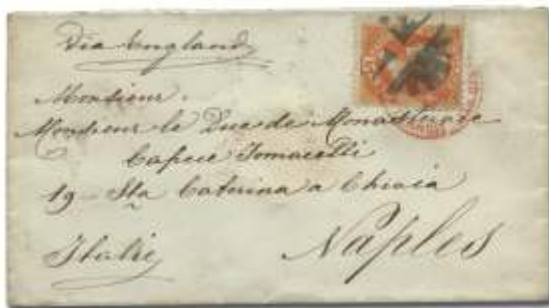 Via England
Monsieur.
Monsieur le Duc de Monasterace
Capece Tomacelli
19 Sta Caterina a Chiaia
Italie
Naples